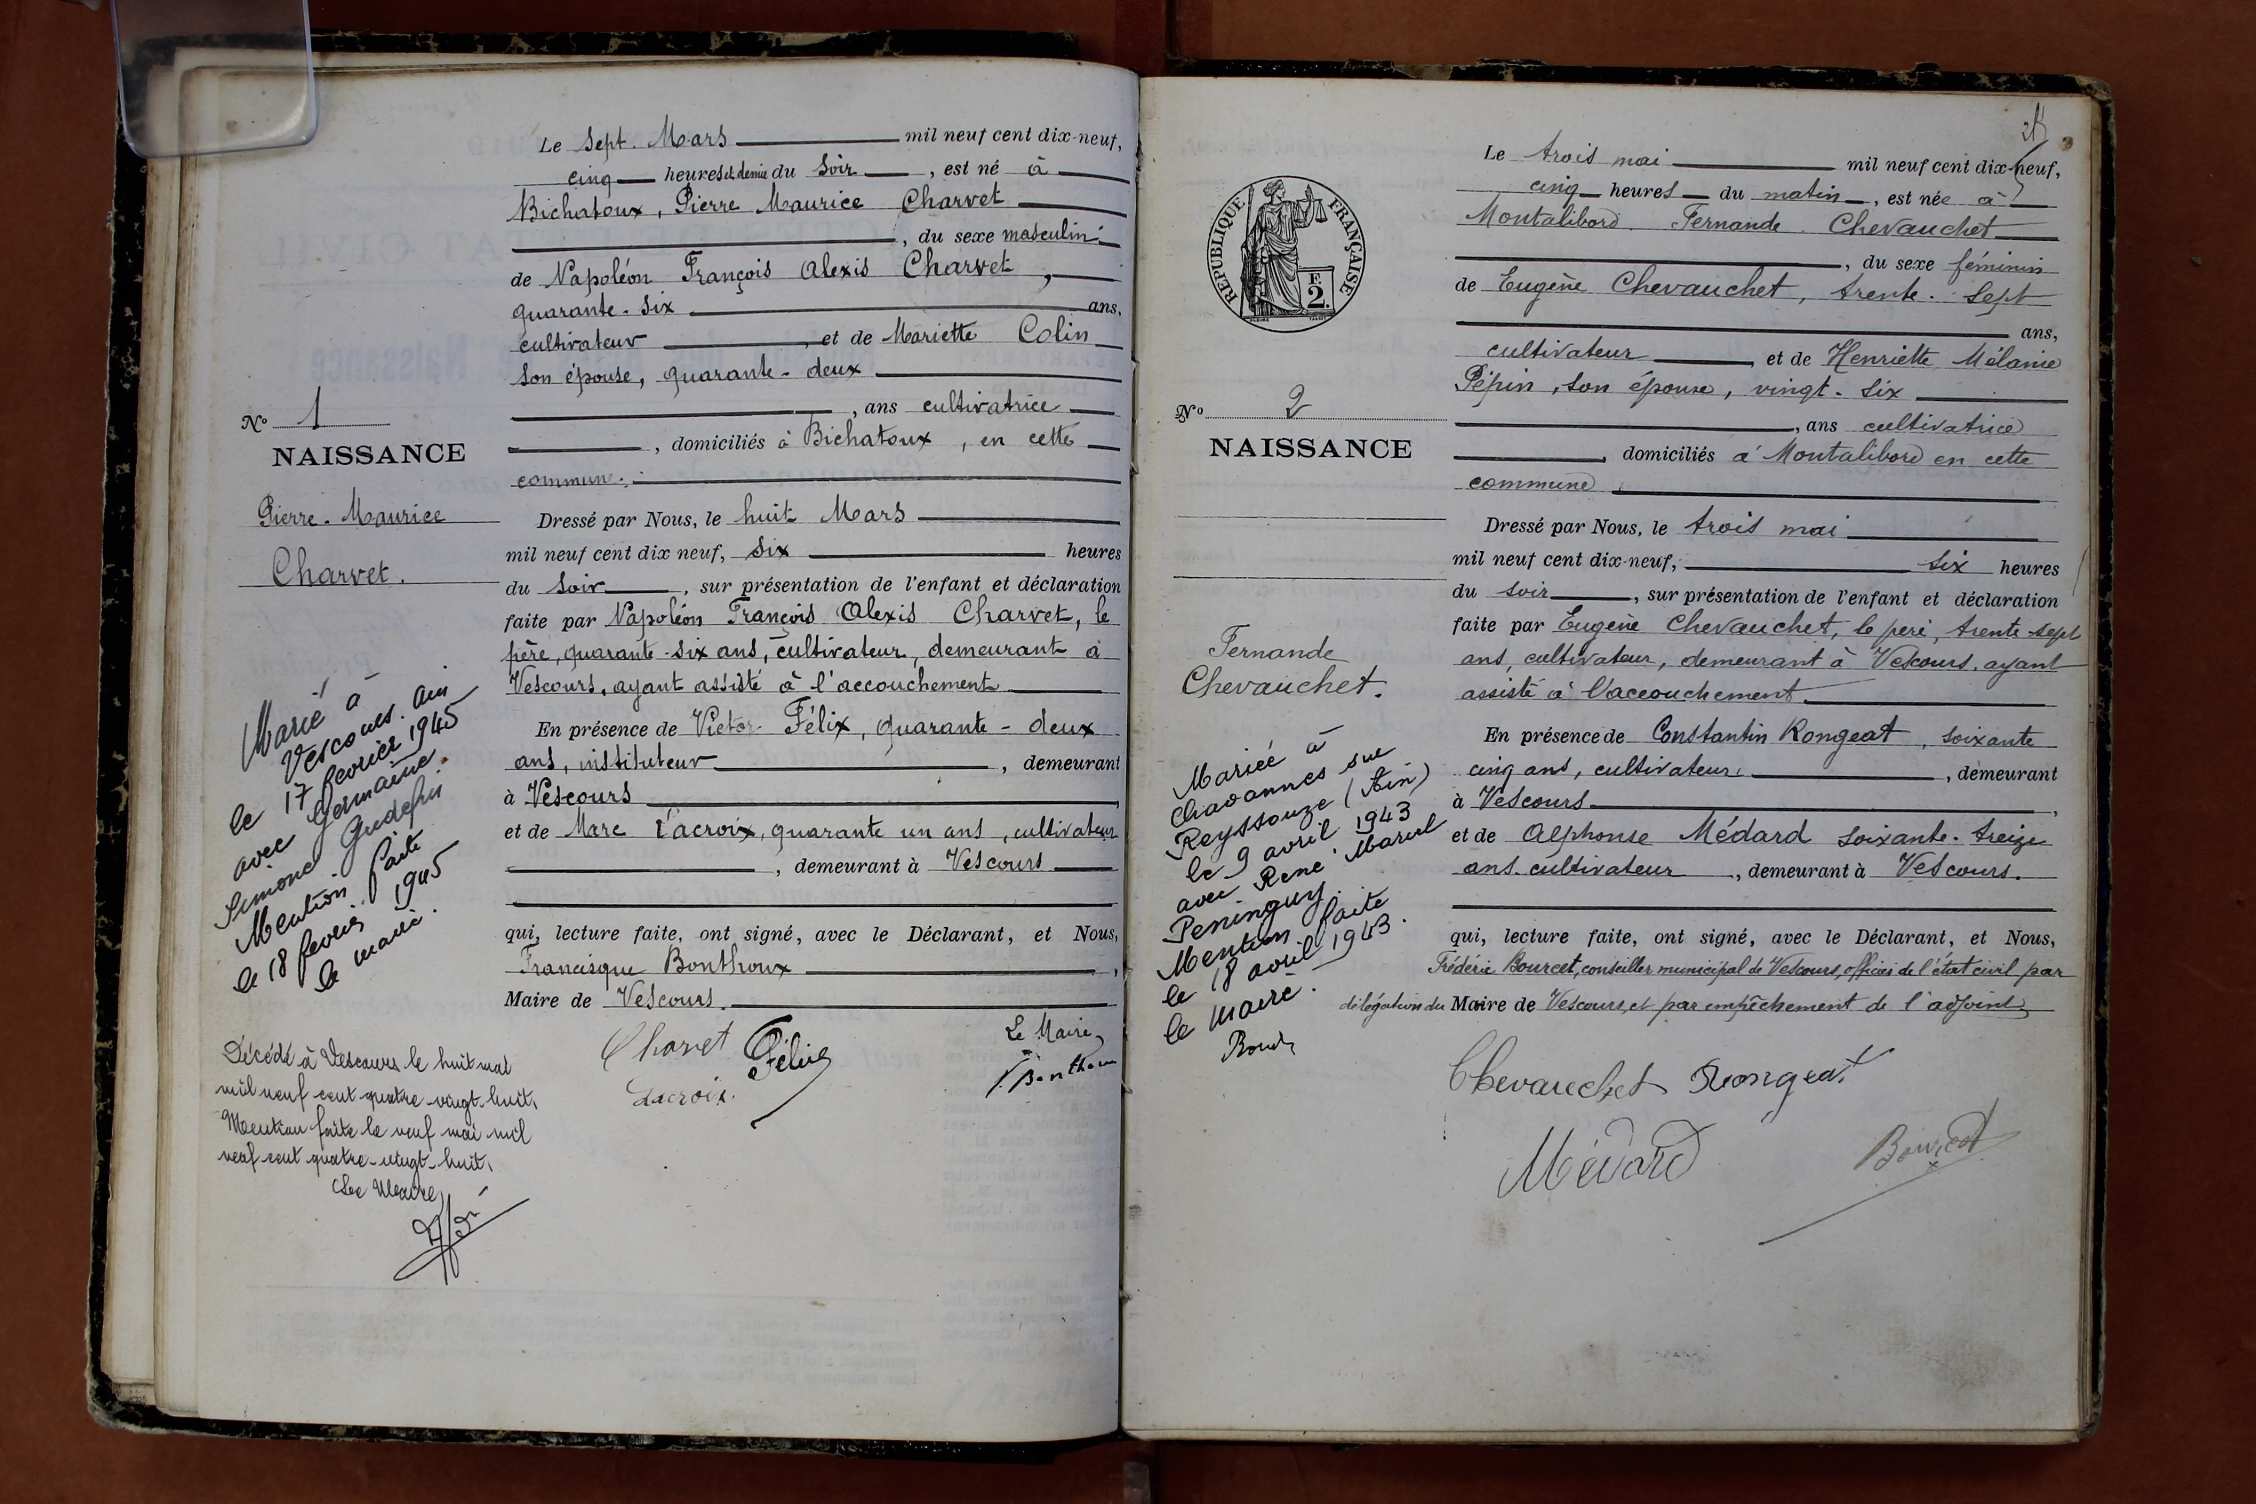 Le sept Mars mil neuf cent dix-neuf,
cinq heures et demie du soir, est né à
Bichatoux, Pierre Maurice Charvet
, du sexe masculin
de Napoléon François Alexis Charvet,
quarante-six ans,
cultivateur, et de Mariette Colin
son épouse, quarante-deux
, ans cultivatrice
, domiciliés à Bichatoux, en cette
commune.
Dressé par Nous, le huit Mars
mil neuf cent dix neuf, six heures
du soir, sur présentation de l'enfant et déclaration
faite par Napoléon François Alexis Charvet, le
père, quarante-six ans, cultivateur, demeurant à
Vescours, ayant assisté à l'accouchement
En présence de Victor Félix, quarante-deux
ans, instituteur, demeurant
à Vescours
et de Marc Lacroix, quarante un ans, cultivateur
, demeurant à Vescours
qui, lecture faite, ont signé, avec le Déclarant, et Nous,
Francisque Bonthoux,
Maire de Vescours.
Charvet Félix
Lacroix.
Le Maire
Bonthoux
No 1
NAISSANCE
Pierre-Maurice
Charvet.
Marié à
Vescours. Ain
le 17 février 1945
avec Germaine
Simone
Mention faite
le 18 février 1945
le maire.
Décédé à Vescours le huit mai
mil neuf cent quatre-vingt-huit.
Mention faite le neuf mai mil
neuf cent quatre-vingt-huit.
Le Maire
Le trois mai mil neuf cent dix-neuf,
cinq heures du matin, est née à
Montalibord Fernande Chevauchet
, du sexe féminin
de Eugène Chevauchet, trente-sept
ans,
cultivateur, et de Henriette Mélanie
Pépin, son épouse, vingt-six
, ans cultivatrice
, domiciliés à Montalibord en cette
commune
Dressé par Nous, le trois mai
mil neuf cent dix-neuf, six heures
du soir, sur présentation de l'enfant et déclaration
faite par Eugène Chevauchet, le père, trente-sept
ans, cultivateur, demeurant à Vescours, ayant
assisté à l'accouchement
En présence de Constantin Rongeat, soixante
cinq ans, cultivateur, demeurant
à Vescours,
et de Alphonse Médard soixante-treize
ans, cultivateur, demeurant à Vescours.
qui, lecture faite, ont signé, avec le Déclarant, et Nous,
Frédéric Bourcet, conseiller municipal de Vescours, officier de l'état civil par
délégation du Maire de Vescours, et par empêchement de l'adjoint
Chevauchet Rongeat
Médard Bourcet
RÉPUBLIQUE FRANÇAISE
F.
2.
No 2
NAISSANCE
Fernande
Chevauchet.
Mariée à
Chavannes sur
Reyssouze (Ain)
le 9 avril 1943
avec René Marcel
Peninguy.
Mention faite
le 18 avril 1943.
le maire.